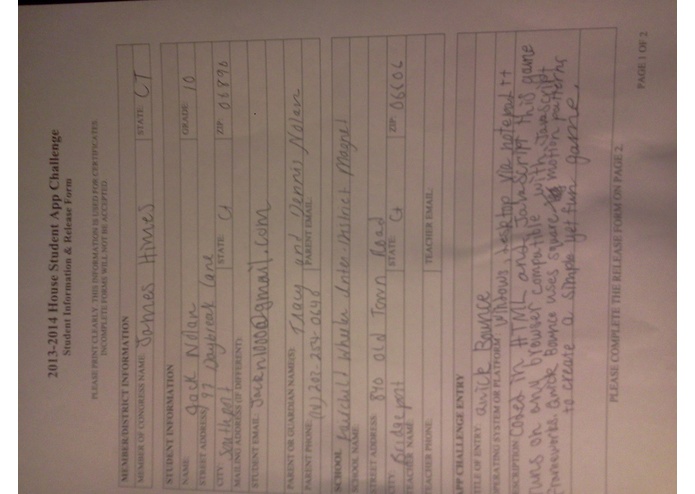 2013-2014 House Student App Challenge
Student Information & Release Form
PLEASE PRINT CLEARLY. THIS INFORMATION IS USED FOR CERTIFICATES.
INCOMPLETE FORMS WILL NOT BE ACCEPTED.
MEMBER/DISTRICT INFORMATION
MEMBER OF CONGRESS NAME: James Himes STATE: CT
STUDENT INFORMATION
NAME: Jack Nolan GRADE: 10
STREET ADDRESS: 97 Daybreak Lane
CITY Southport STATE: Ct ZIP: 06890
MAILING ADDRESS (IF DIFFERENT):
STUDENT EMAIL: Jackn1000@gmail.com
PARENT OR GUARDIAN NAME(S): Tracy and Dennis Nolan
PARENT PHONE: 203 254 0640 PARENT EMAIL:
SCHOOL
SCHOOL NAME: Fairchild Wheeler Inter-District Magnet
STREET ADDRESS: 840 Old Town Road
CITY Bridgeport STATE: Ct ZIP: 06606
TEACHER NAME:
TEACHER PHONE: TEACHER EMAIL:
APP CHALLENGE ENTRY
TITLE OF ENTRY Quick Bounce
OPERATING SYSTEM OR PLATFORM Windows, desktop via notepad ++
DESCRIPTION Coded in HTML and JavaScript this game
runs on any browser compatible with Javascript
frameworks. Quick Bounce uses square motion patterns
to create a simple yet fun game.
PLEASE COMPLETE THE RELEASE FORM ON PAGE 2.
PAGE 1 OF 2